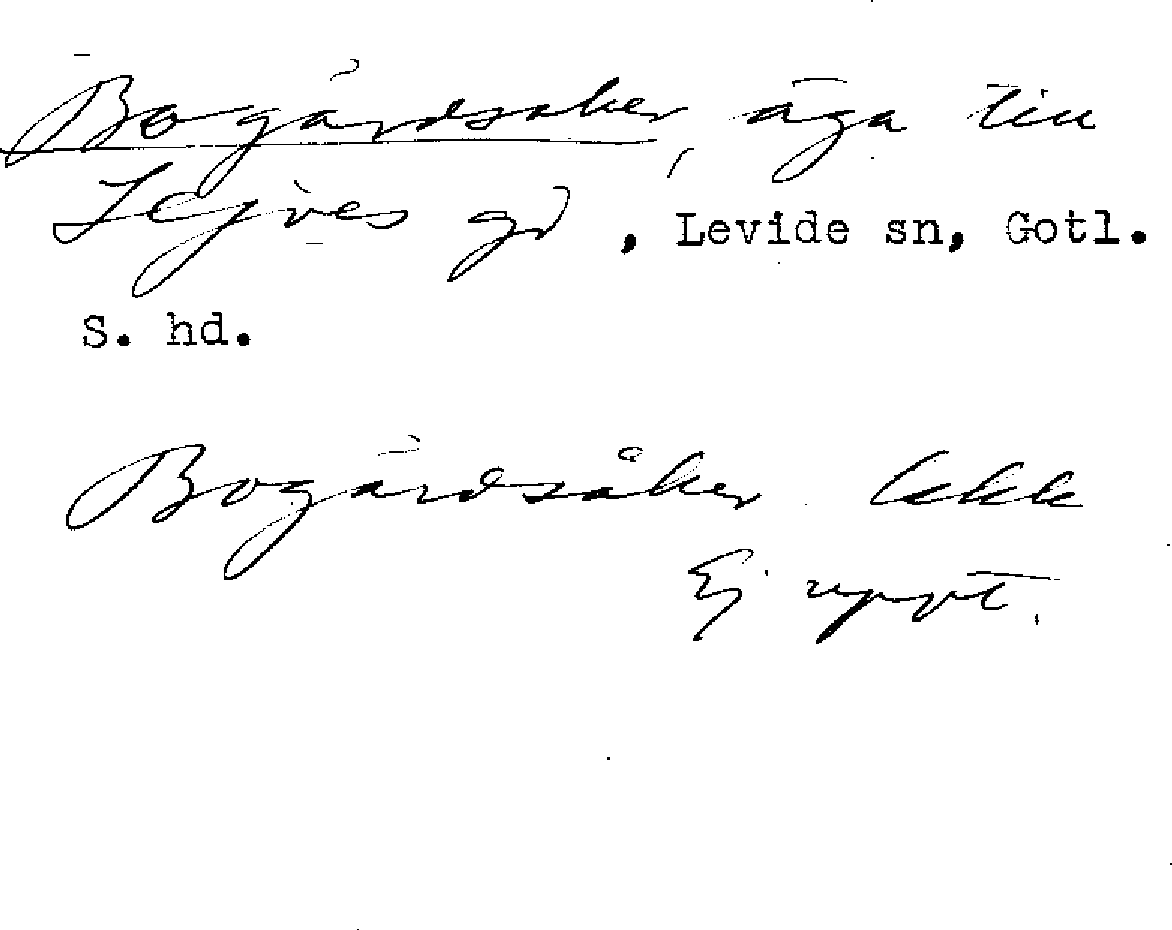 Bogårdsåker, äga till
Lejves gd, Levide sn, Gotl.
S. hd.
Bogårdsåker lekk
Ej uppt.